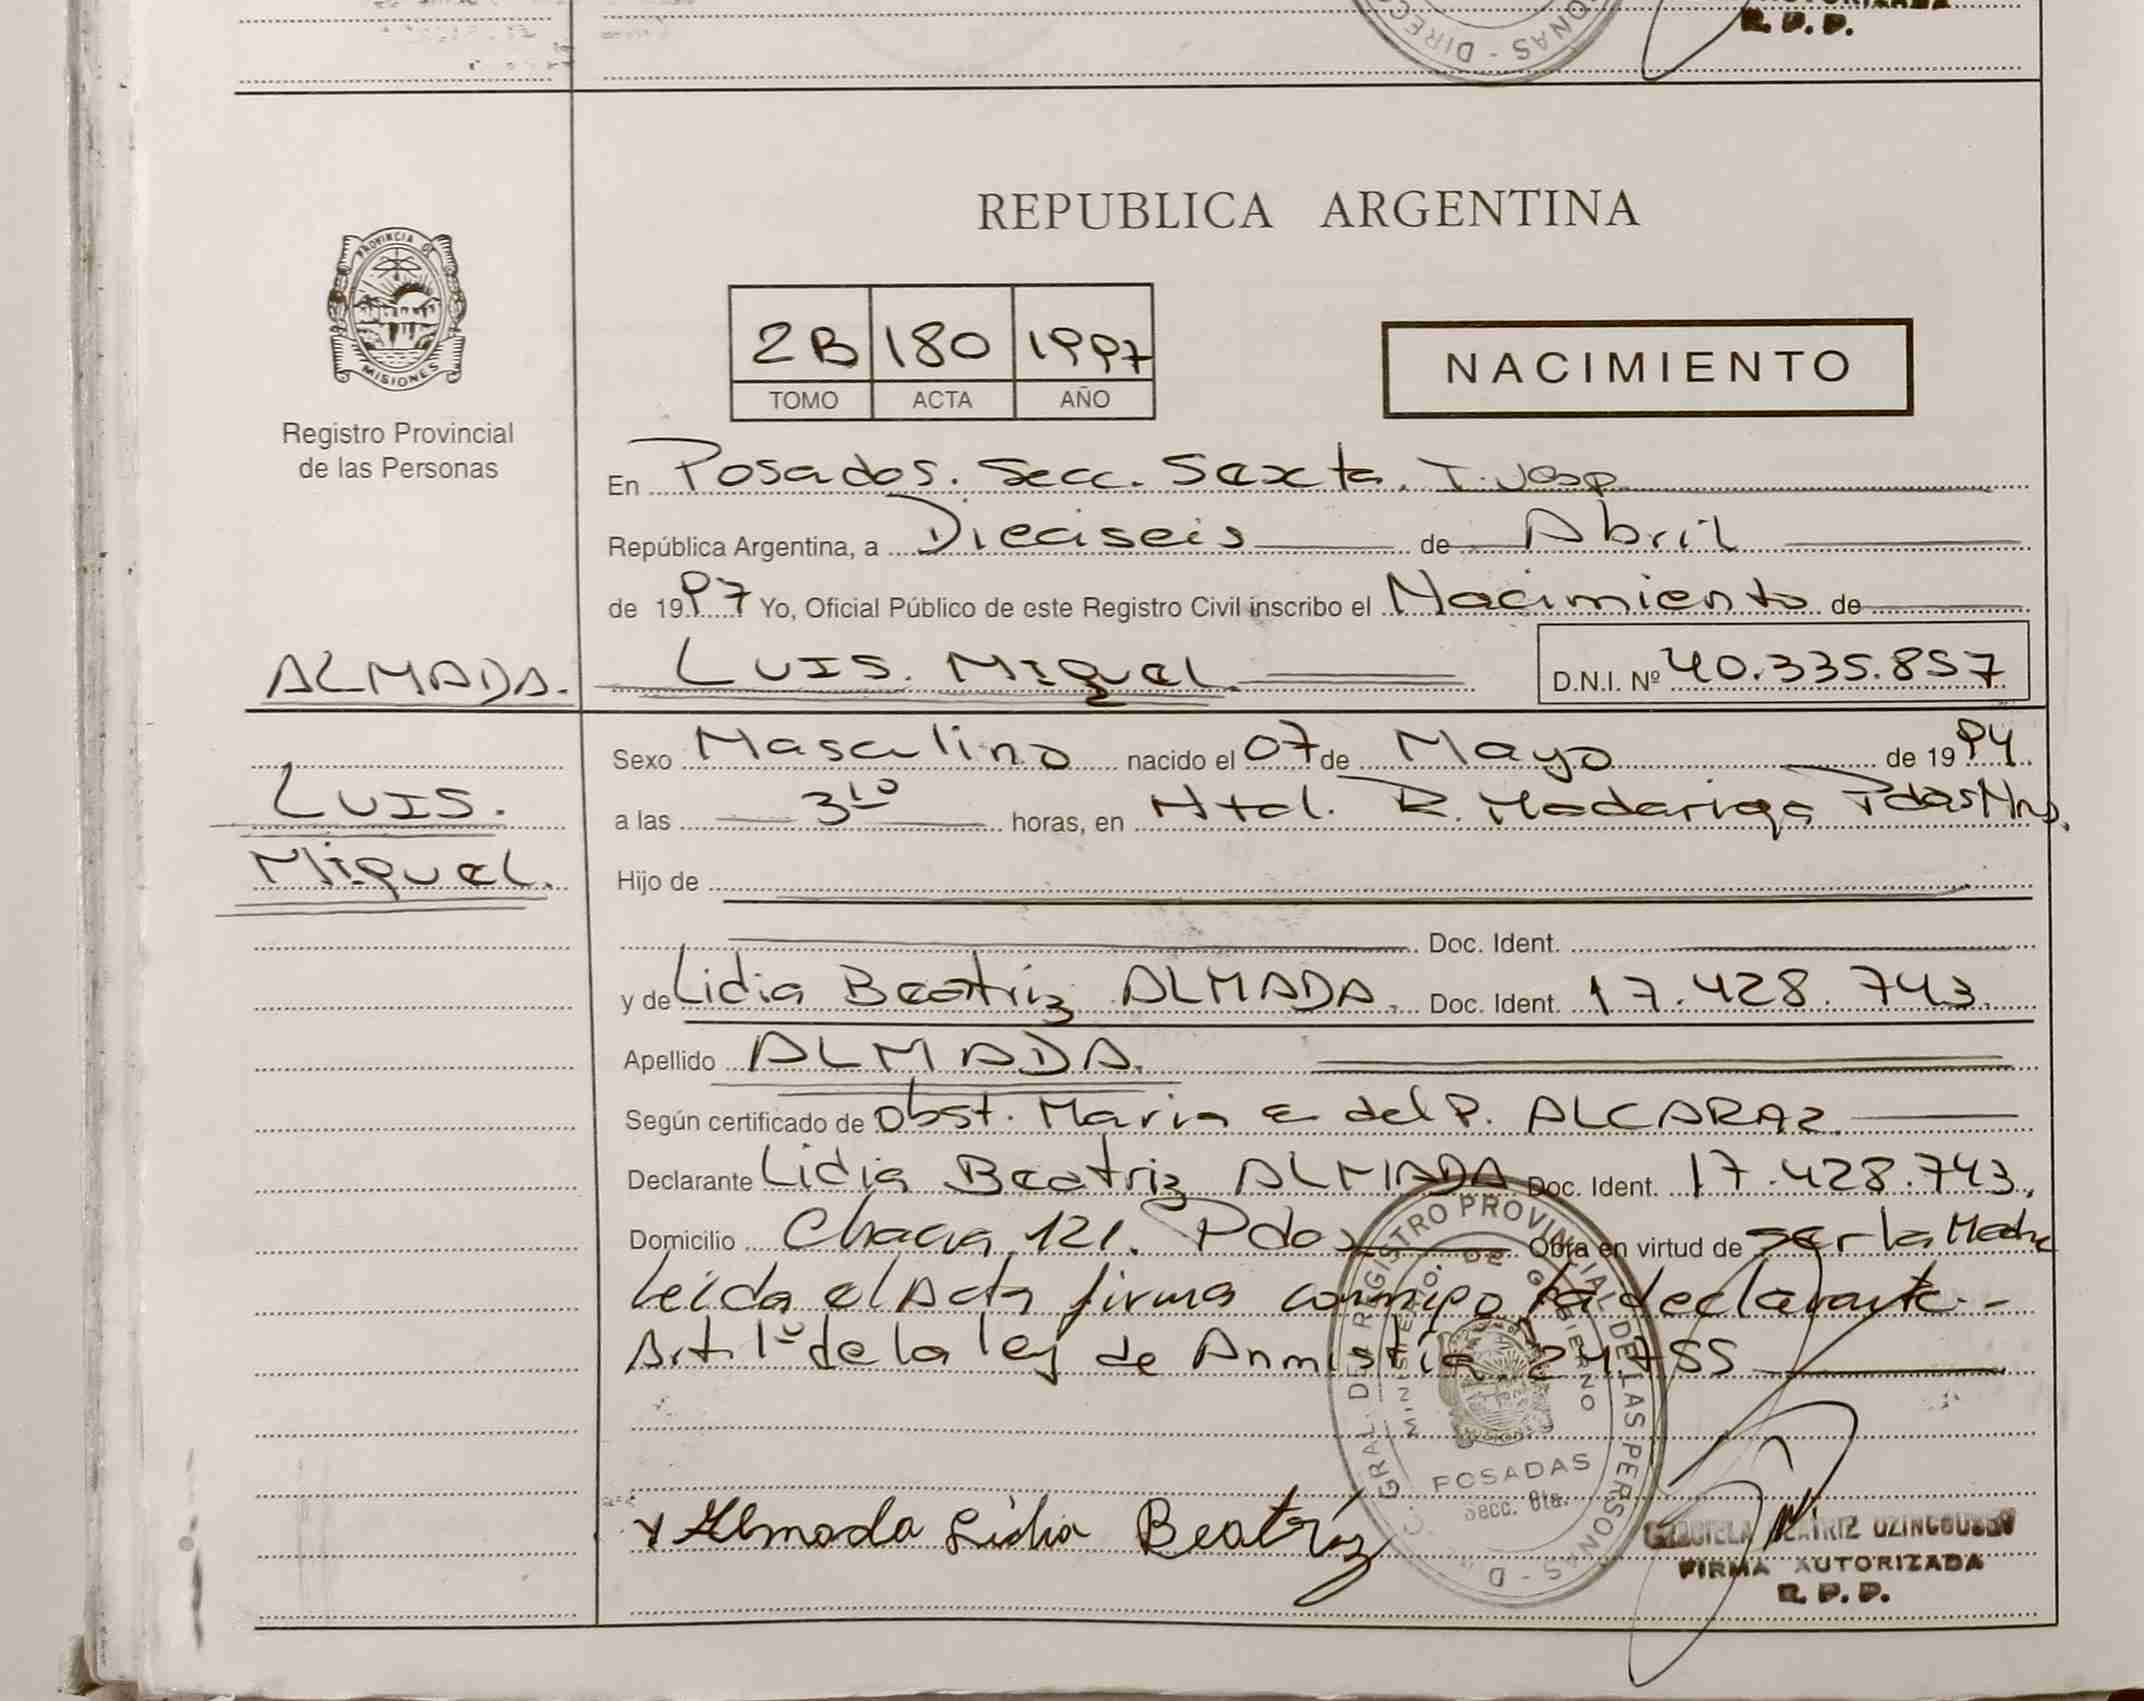 R. P. P.
REPUBLICA ARGENTINA
PROVINCIA DE MISIONES
Registro Provincial
de las Personas
2B 180 1997
TOMO ACTA AÑO
NACIMIENTO
En Posadas. Secc. Sexta.
República Argentina, a Dieciseis de Abril
de 1997 Yo, Oficial Público de este Registro Civil inscribo el Nacimiento de
ALMADA. LUIS. MIGUEL. D.N.I. Nº 40.335.857
Sexo Masculino nacido el 07 de Mayo de 1994
LUIS.
a las 3 10 horas, en Htal. R. Madariaga Pdas Mns.
MIGUEL.
Hijo de
Doc. Ident.
y de Lidia Beatriz ALMADA. Doc. Ident. 17.428.743.
Apellido ALMADA.
Según certificado de Obst. Maria E del P. ALCARAZ
Declarante Lidia Beatriz ALMADA Doc. Ident. 17.428.743.
Domicilio Chacra 121. Pdas Obra en virtud de ser la Madre
Leida el Acta firma conmigo la declarante.-
Art. 1º de la ley de Anmistia 24755
Almada Lidia Beatriz
GRAL. DEL REGISTRO PROVINCIAL DE LAS PERSONAS - D
MINISTERIO DE GOBIERNO
POSADAS
Secc. 6ta.
FIRMA AUTORIZADA
R. P. P.